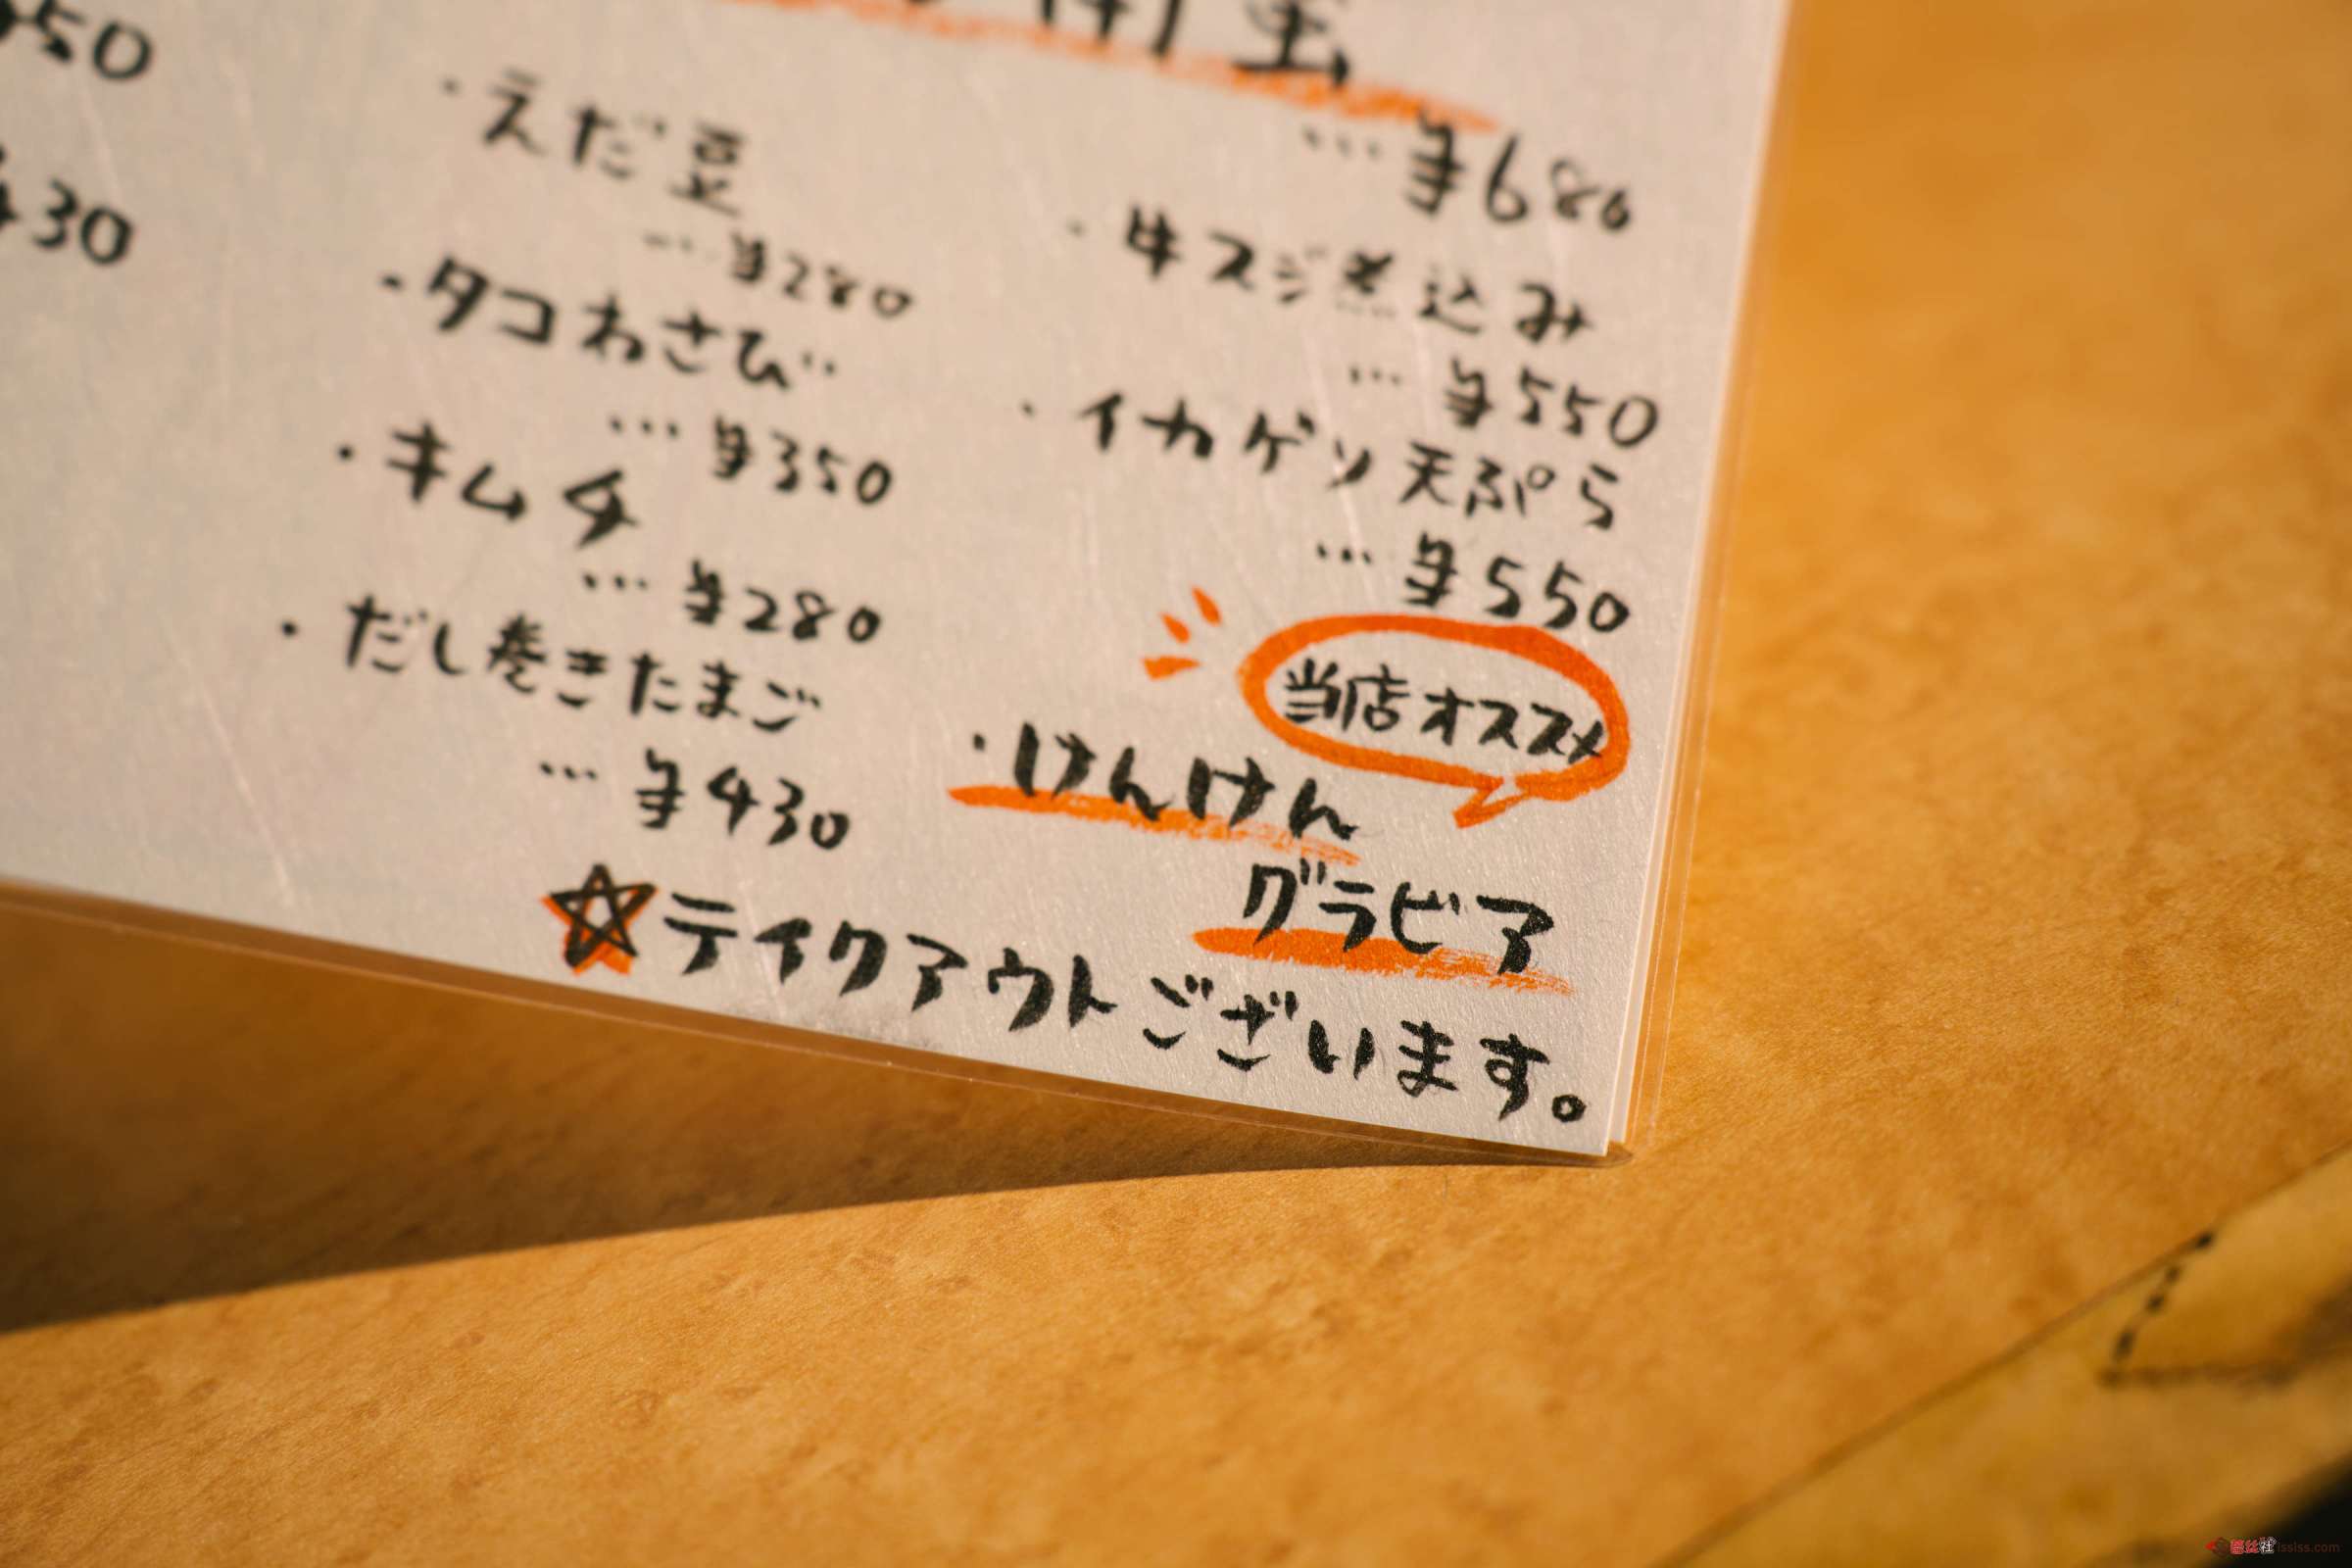 50
430
・えだ豆
…¥280
・タコわさび
…¥350
・キムチ
…¥280
・だし巻きたまご
…¥430
…¥680
・牛スジ煮込み
…¥550
・イカゲソ天ぷら
…¥550
当店オススメ
・けんけん
グラビア
☆テイクアウトございます。
ississ.com